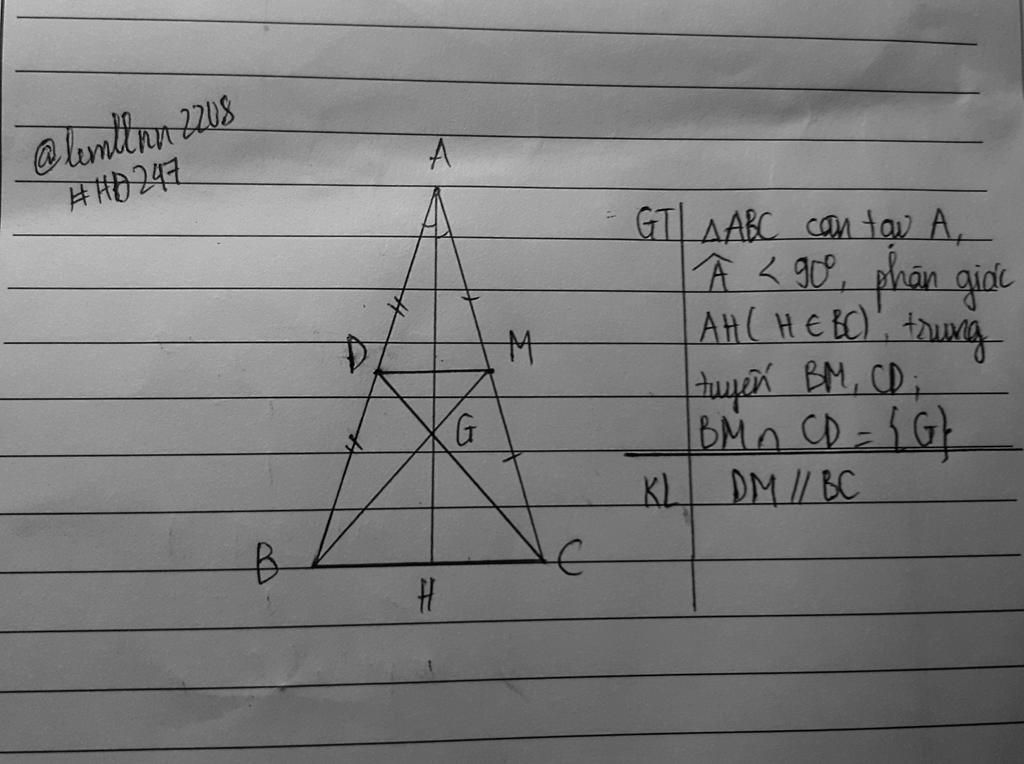 @lemllnn2208
#HD247
A
D
M
G
B
H
C
GT ΔABC cân tại A,
Â < 90°, phân giác
AH (H ∈ BC), trung
tuyến BM, CD;
BM ∩ CD = {G}
KL DM // BC